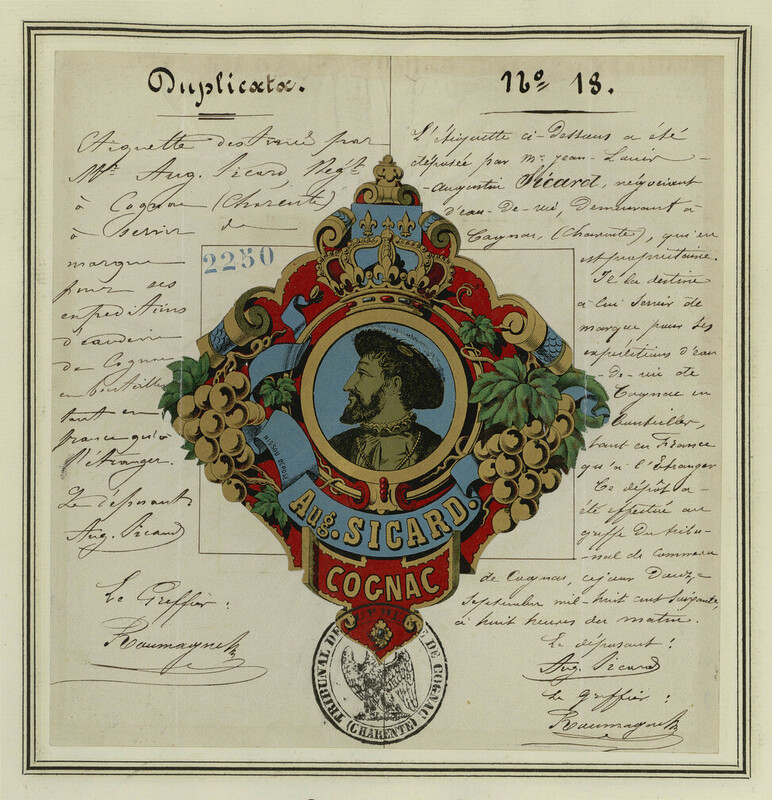 Duplicata.
Etiquette destinée par
Mr. Aug. Sicard, Négt.
à Cognac (Charente)
à servir de
marque
pour ses
expéditions
d'eaudevie
de Cognac
en bouteilles
tant en
france qu'à
l'étranger.
Le déposant
Aug. Sicard
Le Greffier :
No 18.
L'étiquette ci-dessus a été
déposée par Mr. Jean-Louis-
-Augustin Sicard, négociant
d'eau-de-vie, demeurant à
Cognac, (Charente), qui en
est propriétaire.
Il la destine
à lui servir de
marque pour ses
expéditions d'eau
-de-vie de
Cognac en
bouteilles,
tant en France
qu'à l'Etranger
Ce dépôt a
été effectué au
greffe du tribu-
nal de commerce
de Cognac, ce jour Douze
Septembre mil-huit cent soixante,
à huit heures du matin.
Le déposant :
Aug. Sicard
Le Greffier :
2250
Aug. SICARD.
COGNAC
TRIBUNAL DE COMMERCE DE COGNAC
(CHARENTE)